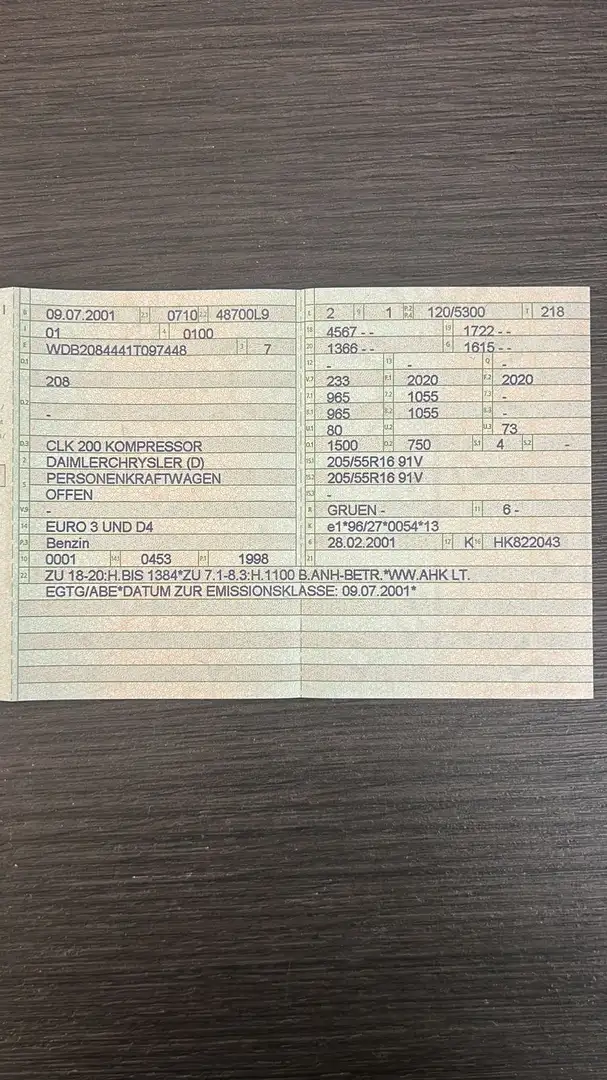 B 09.07.2001 2.1 0710 2.2 48700L9
J 01 4 0100
E WDB2084441T097448 3 7
D.1
208
D.2
-
D.3 CLK 200 KOMPRESSOR
2 DAIMLERCHRYSLER (D)
5 PERSONENKRAFTWAGEN
OFFEN
V.9 -
14 EURO 3 UND D4
P.3 Benzin
10 0001 14.1 0453 P.1 1998
22 ZU 18-20:H.BIS 1384*ZU 7.1-8.3:H.1100 B.ANH-BETR.*WW.AHK LT.
EGTG/ABE*DATUM ZUR EMISSIONSKLASSE: 09.07.2001*
L 2 9 1 P.2 P.4 120/5300 T 218
18 4567 - - 19 1722 - -
20 1366 - - G 1615 - -
12 - 13 - Q -
V.7 233 F.1 2020 F.2 2020
7.1 965 7.2 1055 7.3 -
8.1 965 8.2 1055 8.3 -
U.1 80 U.2 U.3 73
O.1 1500 O.2 750 S.1 4 S.2 -
15.1 205/55R16 91V
15.2 205/55R16 91V
15.3 -
R GRUEN - 11 6 -
K e1*96/27*0054*13
6 28.02.2001 17 K 16 HK822043
21